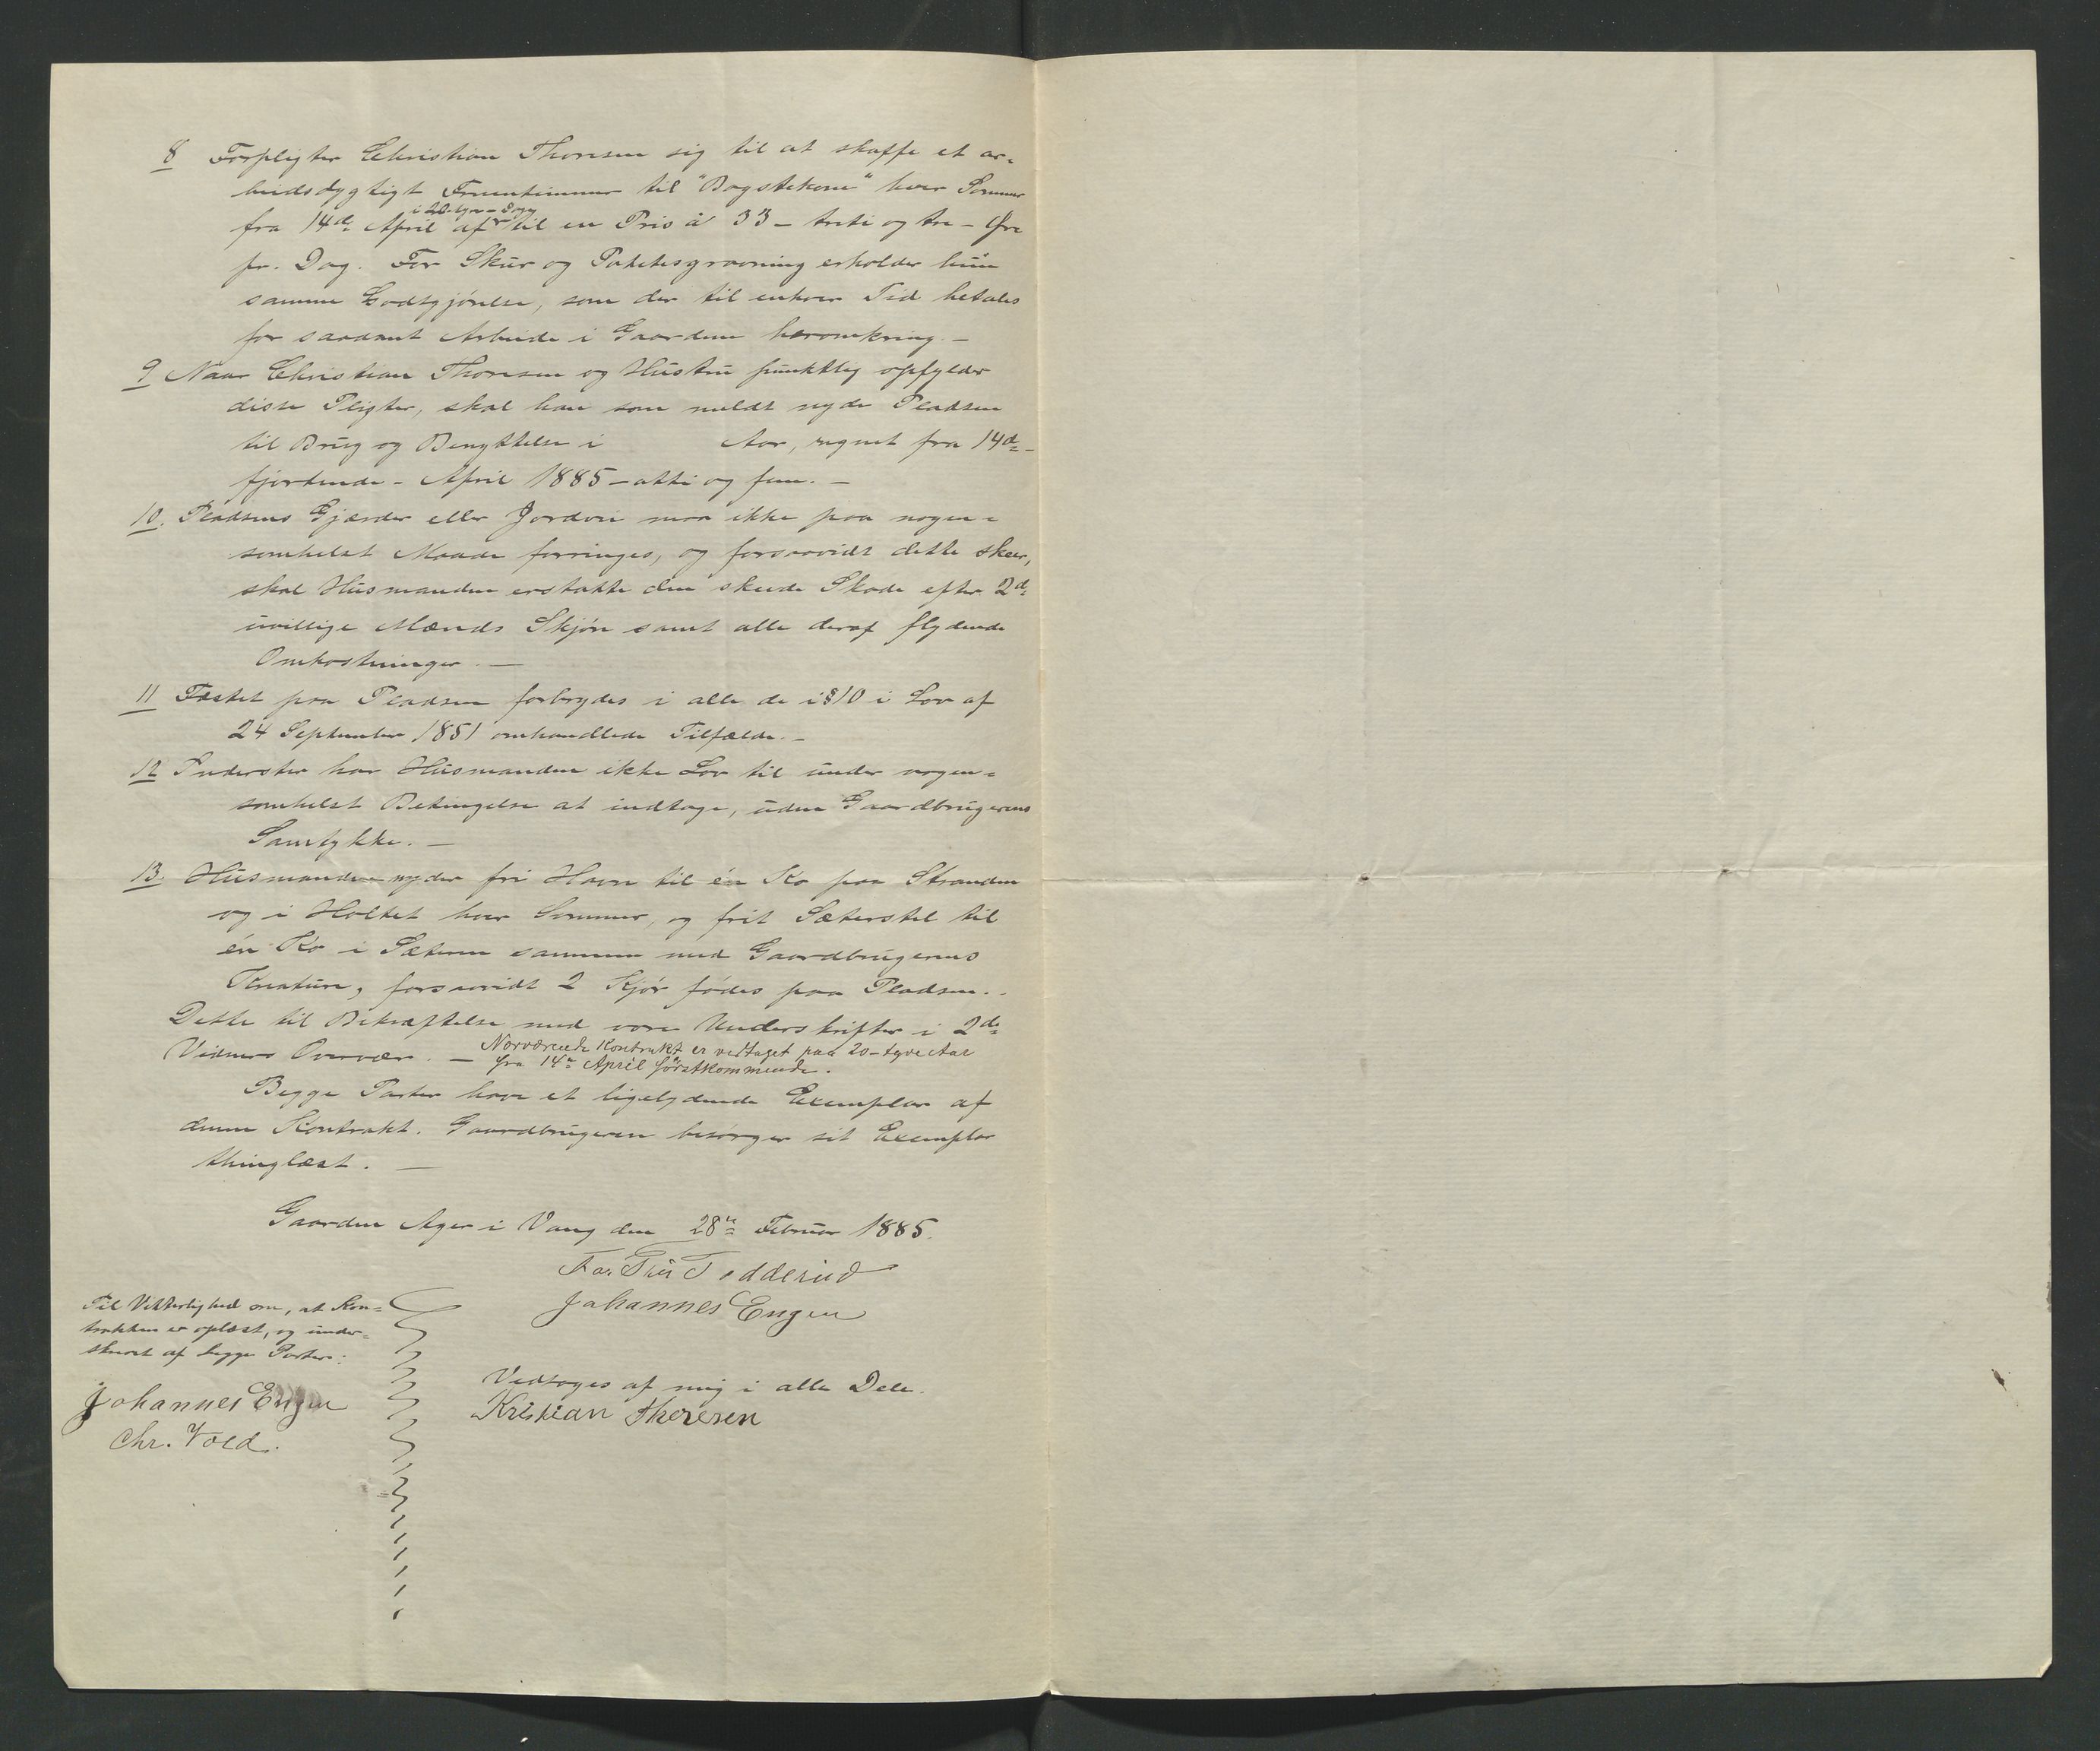 8 Forpligter Christian Thoresen sig til at skaffe et ar-
beidsdygtigt Fruentimmer til "Bagstekone" hver Sommer
fra 14de April af til en Pris à 33 - treti og tre - Øre
pr. Dag. For Skur og Potetesgravning erholder hun
samme Godtgjørelse, som der til enhver Tid betales
for saadant Arbeide i Gaardene heromkring. -
9 Naar Christian Thoresen og Hustru punktlig opfylder
disse Pligter, skal han som meldt nyde Pladsen
til Brug og Benyttelse i Aar, regnet fra 14de -
fjortende - April 1885 - otti og fem. -
10. Pladsens Gjærder eller Jordvei maa ikke paa nogen-
somhelst Maade forringes, og forsaavidt dette skeer,
skal Husmanden erstatte den skeede Skade efter 2de
uvillige Mænds Skjøn samt alle deraf flydende
Omkostninger. -
11 Fæstet paa Pladsen forbrydes i alle de i § 10 i Lov af
24 September 1851 omhandlede Tilfælde. -
12 Inderster har Husmanden ikke Lov til under nogen-
somhelst Betingelse at indtage, uden Gaardbrugerens
Samtykke. -
13. Husmanden nyder fri Havn til én Ko paa Stranden
og i Holtet hver Sommer, og frit Sæterstel til
én Ko i Sæteren sammen med Gaardbrugerens
Kreature, forsaavidt 2 Kjør fødes paa Pladsen. -
Dette til Bekræftelse med vore Underskrifter i 2de
Vidners Overvær. - Nærværende Kontrakt er vedtaget paa 20 - tyve Aar
fra 14de April førstkommende.
Begge Parter have et ligelydende Exemplar af
denne Kontrakt. Gaardbrugeren besørger sit Exemplar
thinglæst. -
Gaarden Ager i Vang den 28de Februar 1885.
For
Johannes Engen
Til Vitterlighed om, at Kon-
trakten er oplæst, og under-
skrevet af begge Parter:
Johannes Engen
Chr. Vold.
Vedtages af mig i alle Dele.
Kristian Thoresen